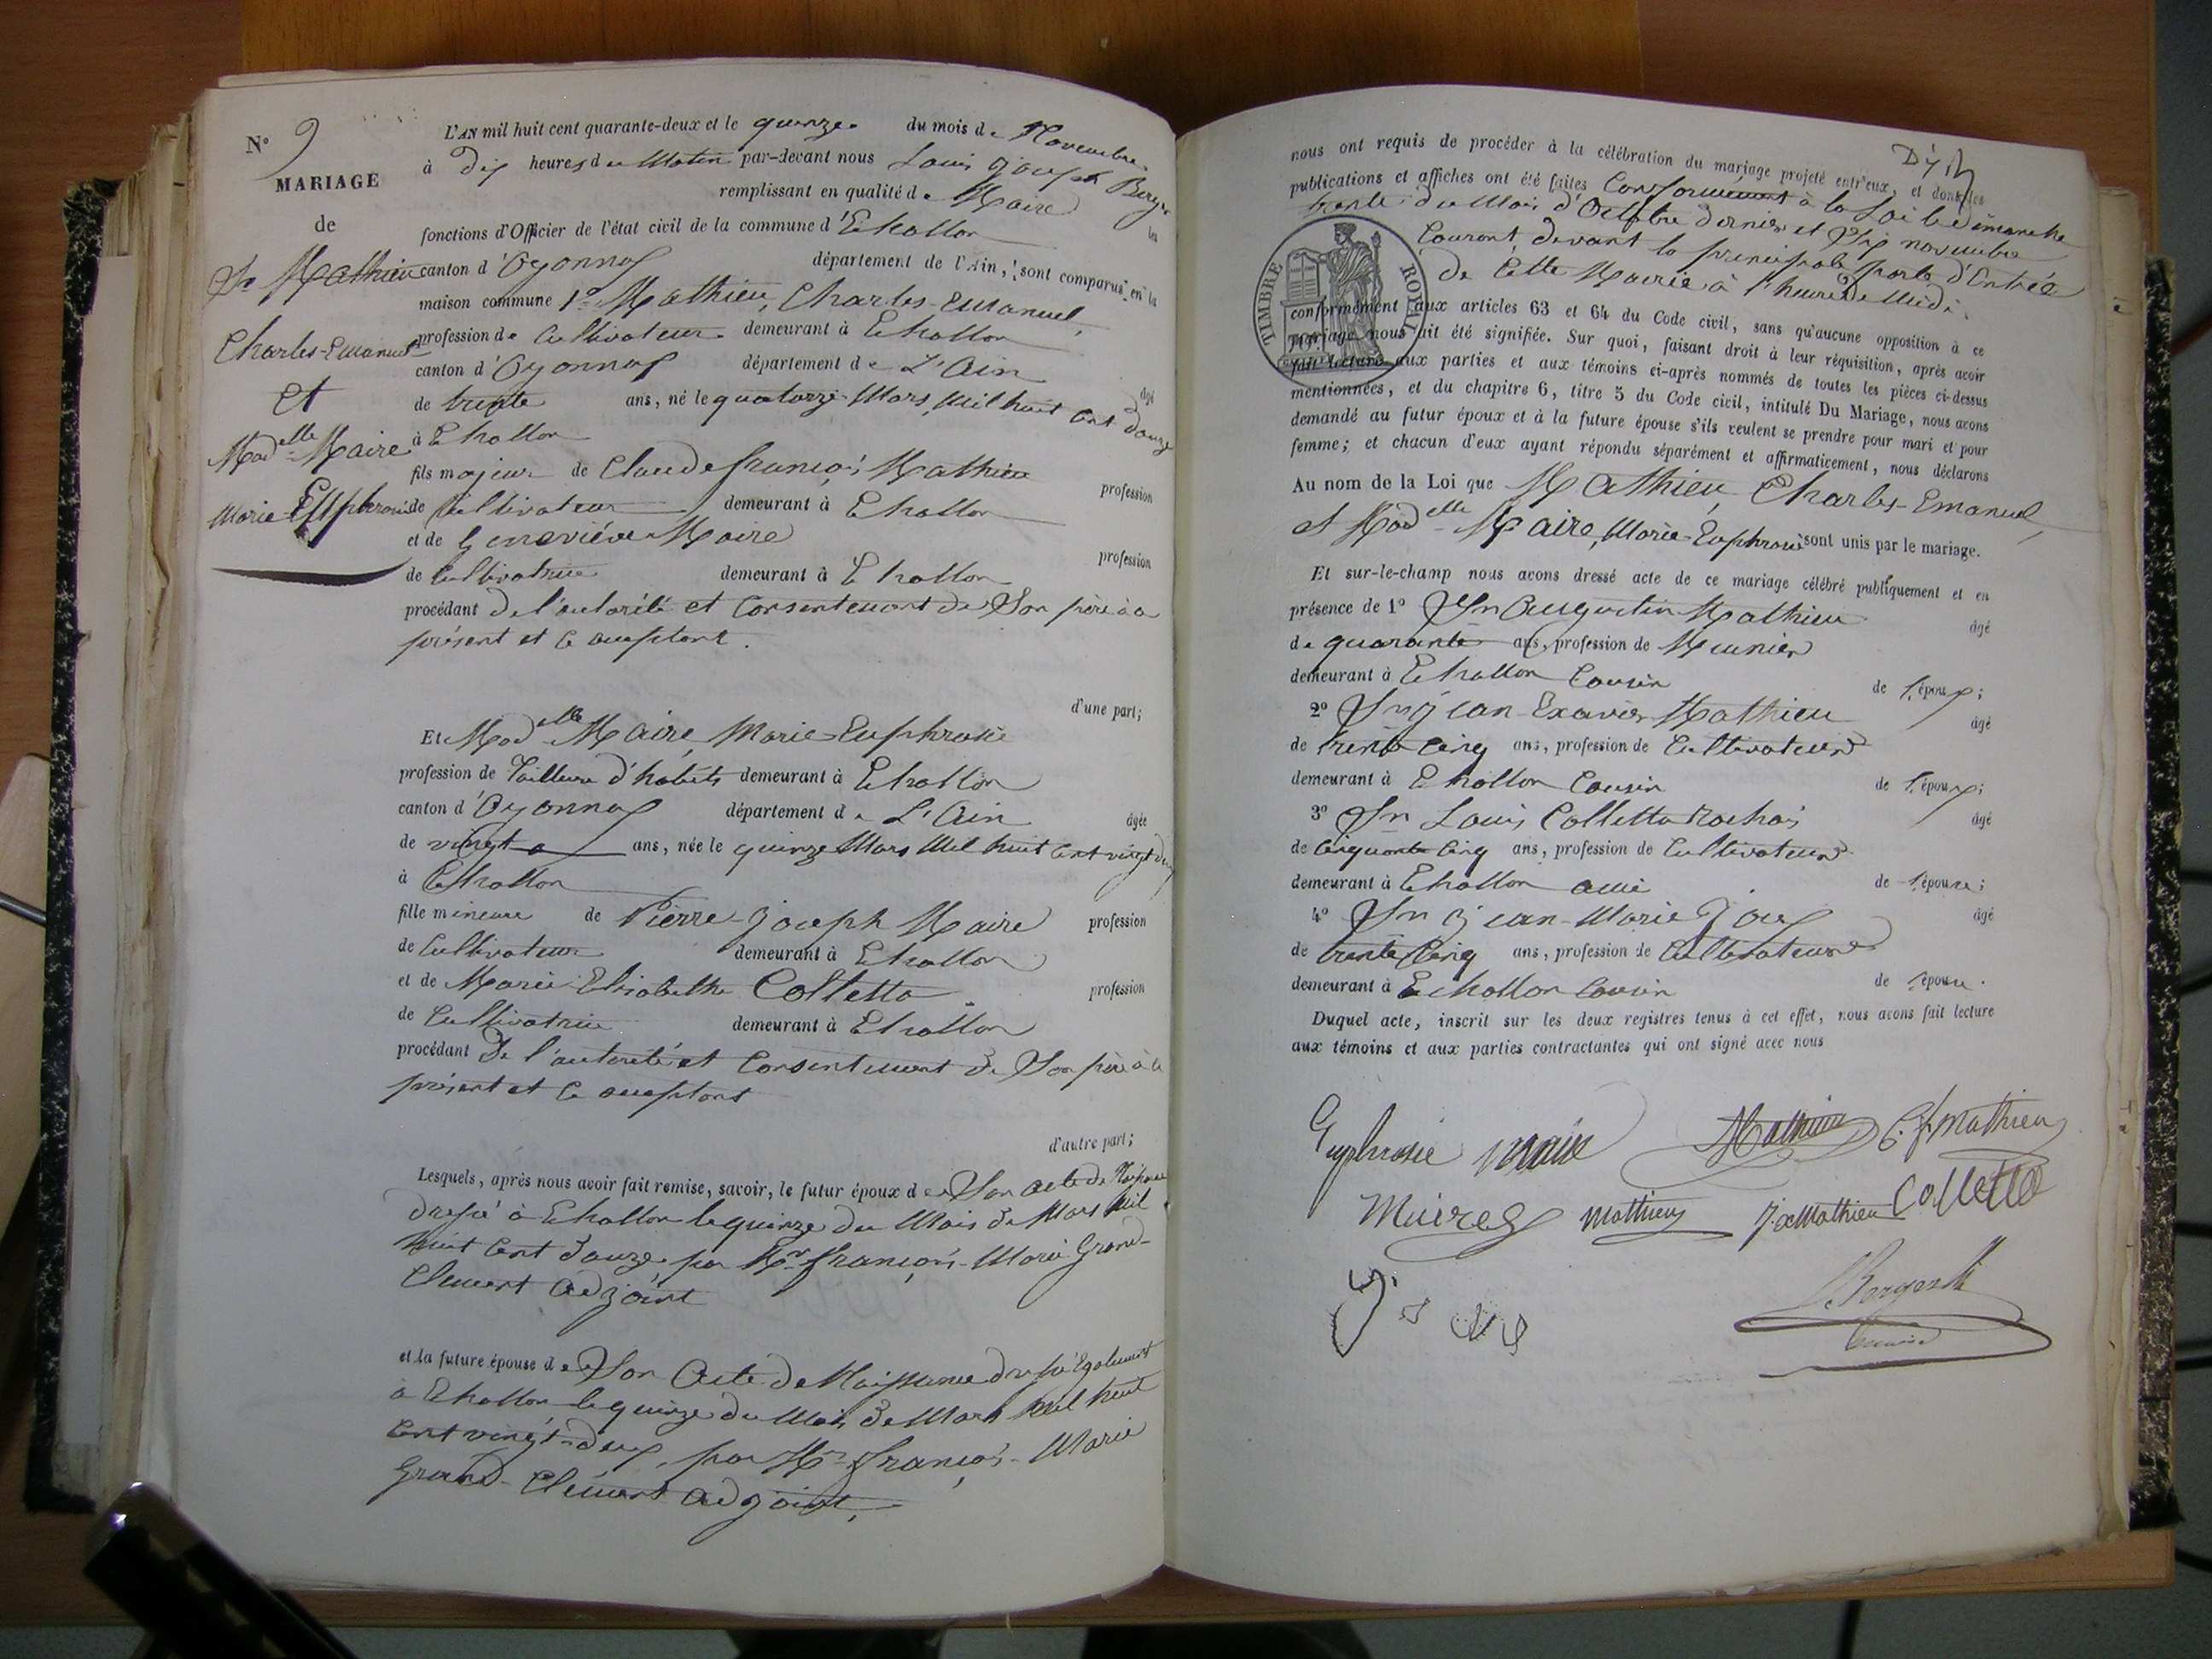 N° 9
MARIAGE
de
Sr Mathieu
Charles-Emanuel
et
Madelle Maire
Marie-Euphrosie
L'AN mil huit cent quarante-deux et le quinze du mois de Novembre
à dix heures du Matin par-devant nous Louis Joseph
remplissant en qualité de Maire les
fonctions d'Officier de l'état civil de la commune d'Echallon
canton d'Oyonnax département de l'Ain, sont comparus en la
maison commune 1° Mathieu, Charles-Emanuel,
profession de Cultivateur demeurant à Echallon
canton d'Oyonnax département de L'Ain âgé
de trente ans, né le quatorze Mars Mil huit cent douze
à Echallon
fils majeur de Claude françois Mathieu profession
de Cultivateur demeurant à Echallon
et de Geneviève Maire profession
de Cultivatrice demeurant à Echallon
procédant de l'autorité et Consentement de Son père à ce
présent et ce acceptant.
d'une part;
Et Madelle Maire, Marie-Euphrosie
profession de Tailleuse d'habits demeurant à Echallon
canton d'Oyonnax département de L'Ain âgée
de vingt ans, née le quinze Mars Mil huit Cent vingt deux
à Echallon
fille mineure de Pierre-Joseph Maire profession
de Cultivateur demeurant à Echallon
et de Marie Elisabethe Colletta profession
de Cultivatrice demeurant à Echallon
procédant De l'autorité et Consentement de Son père à ce
présent et ce acceptant
d'autre part;
Lesquels, après nous avoir fait remise, savoir, le futur époux de Son acte de Naissance
dressé à Echallon le quinze du Mois de Mars Mil
huit Cent douze par Mr françois-Marie Grand-
Clement Adjoint
et la future épouse de Son Acte de Naissance dressé Egalement
à Echallon le quinze du Mois de Mars Mil huit
Cent vingt-deux, par Mr françois-Marie
Grand-Clément Adjoint,
nous ont requis de procéder à la célébration du mariage projeté entr'eux, et dont les
publications et affiches ont été faites Conformément à la Loi le dimanche
trente du Mois d'Octobre dernier et Six novembre
Courant devant la principale porte d'Entrée
de Cette Mairie à l'heure de Midi.
TIMBRE ROYAL
conformément aux articles 63 et 64 du Code civil, sans qu'aucune opposition à ce
mariage nous ait été signifiée. Sur quoi, faisant droit à leur réquisition, après avoir
fait lecture aux parties et aux témoins ci-après nommés de toutes les pièces ci-dessus
mentionnées, et du chapitre 6, titre 5 du Code civil, intitulé Du Mariage, nous avons
demandé au futur époux et à la future épouse s'ils veulent se prendre pour mari et pour
femme; et chacun d'eux ayant répondu séparément et affirmativement, nous déclarons
Au nom de la Loi que Mathieu, Charles-Emanuel,
et Madelle Maire, Marie-Euphrosie sont unis par le mariage.
Et sur-le-champ nous avons dressé acte de ce mariage célébré publiquement et en
présence de 1° Sr Augustin Mathieu âgé
de quarante ans, profession de Meunier
demeurant à Echallon Cousin de l'époux;
2° Sr Jean-Exavier Mathieu âgé
de trente cinq ans, profession de Cultivateur
demeurant à Echallon Cousin de l'époux;
3° Sr Louis Colletta Rochas âgé
de Cinquante Cinq ans, profession de Cultivateur
demeurant à Echallon ami de l'épouse;
4° Sr Jean-Marie Joux âgé
de trente Cinq ans, profession de Cultivateur
demeurant à Echallon Cousin de l'épouse.
Duquel acte, inscrit sur les deux registres tenus à cet effet, nous avons fait lecture
aux témoins et aux parties contractantes qui ont signé avec nous
Euphrosie Maire Mathieu C. f. Mathieu
Maire Mathieu J. x Mathieu Colletta